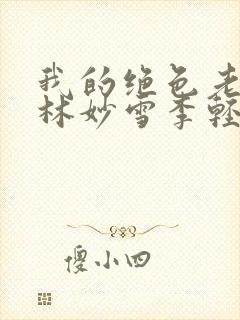 我的绝色老
林妙雪季轻
傻小四